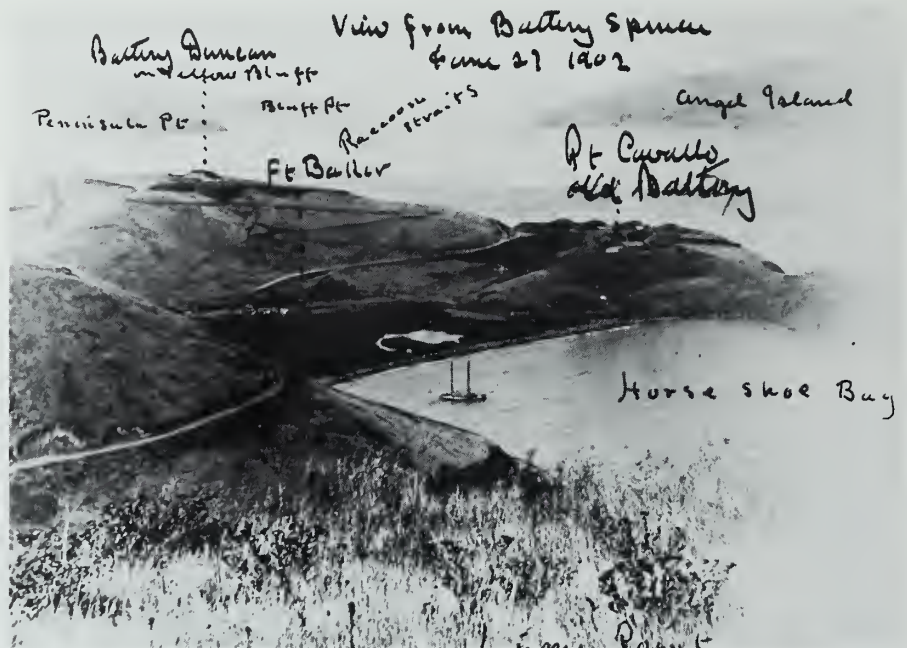 View from Battery Spencer
June 27 1902
Battery Duncan
on Yellow Bluff
Bluff Pt
Peninsula Pt
Raccoon
straits
Angel Island
Ft Baker
Pt Cavallo
old Battery
Horse Shoe Bay
Point